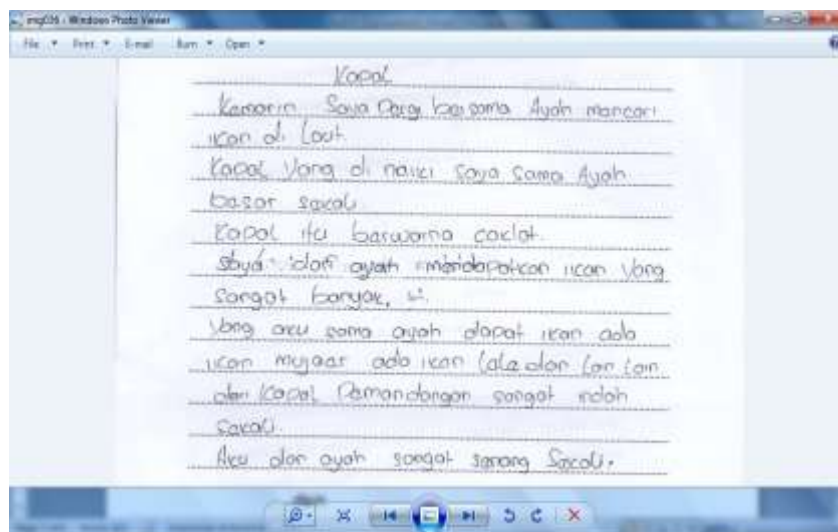 img036 - Windows Photo Viewer
File Print E-mail Burn Open
Kapal
Kemarin Saya Pergi bersama Ayah mancari
ikan di Laut.
Kapal Yang di naiki saya Sama Ayah
basar sakali
Kapal itu barwarna coklat.
saya dan ayah mandapatkan ikan Yang
Sangat banyak,
Yang aku sama ayah dapat ikan ada
ikan mujaar ada ikan lala dan lan lain
dari Kapal Pamandangan sangat indah
Sakali.
Aku dan ayah sangat sanang Sakali.